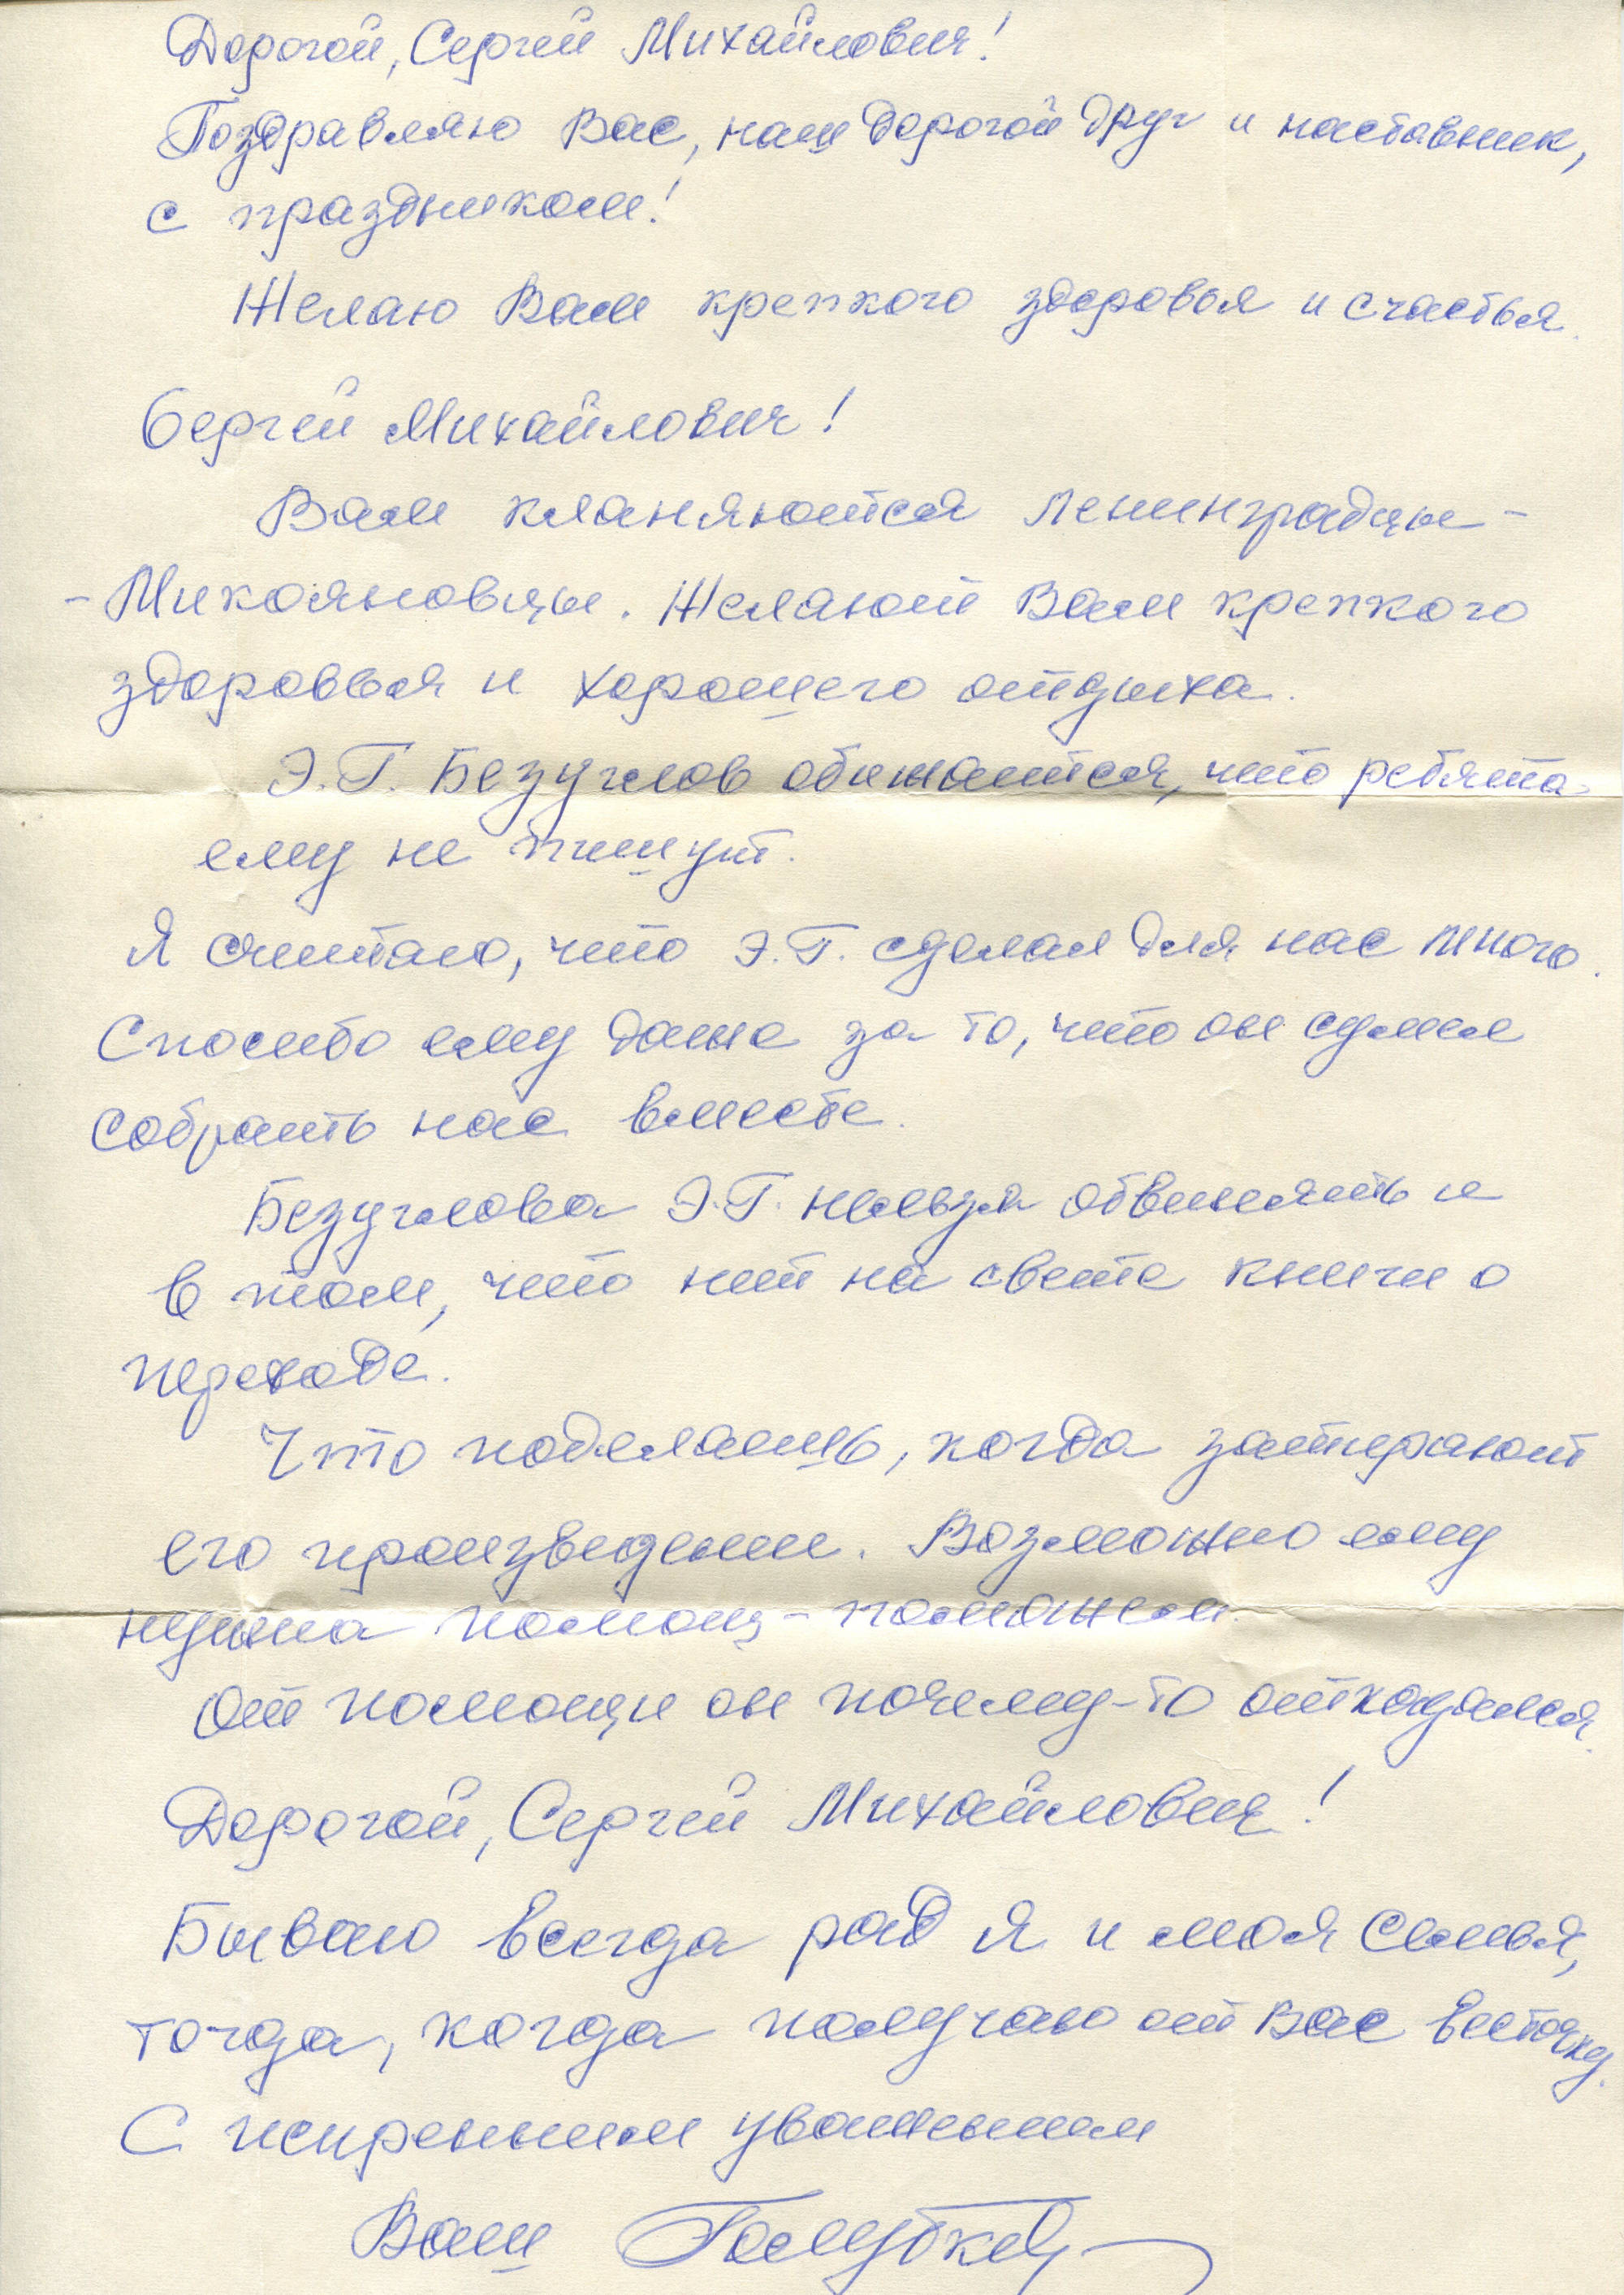 Дорогой, Сергей Михайлович!
Поздравляю Вас, наш дорогой друг и наставник,
с праздником!
Желаю Вам крепкого здоровья и счастья.
Сергей Михайлович!
Вам кланяются Ленинградцы-
-Микояновцы. Желают Вам крепкого
здоровья и хорошего отдыха.
Э.Г. Безуглов обижается, что ребята
ему не пишут.
Я считаю, что Э.Г. сделал для нас много.
Спасибо ему даже за то, что он сумел
собрать нас вместе.
Безуглова Э.Г. нельзя обвинять и
в том, что нет на свете книги о
переходе.
Что поделаешь, когда затирают
его произведении. Возможно ему
нужна помощ - поможем.
От помощи он почему-то отказался.
Дорогой, Сергей Михайлович!
Бываю всегда рад я и моя семья,
тогда, когда получаю от Вас весточку.
С искренним уважением
Ваш